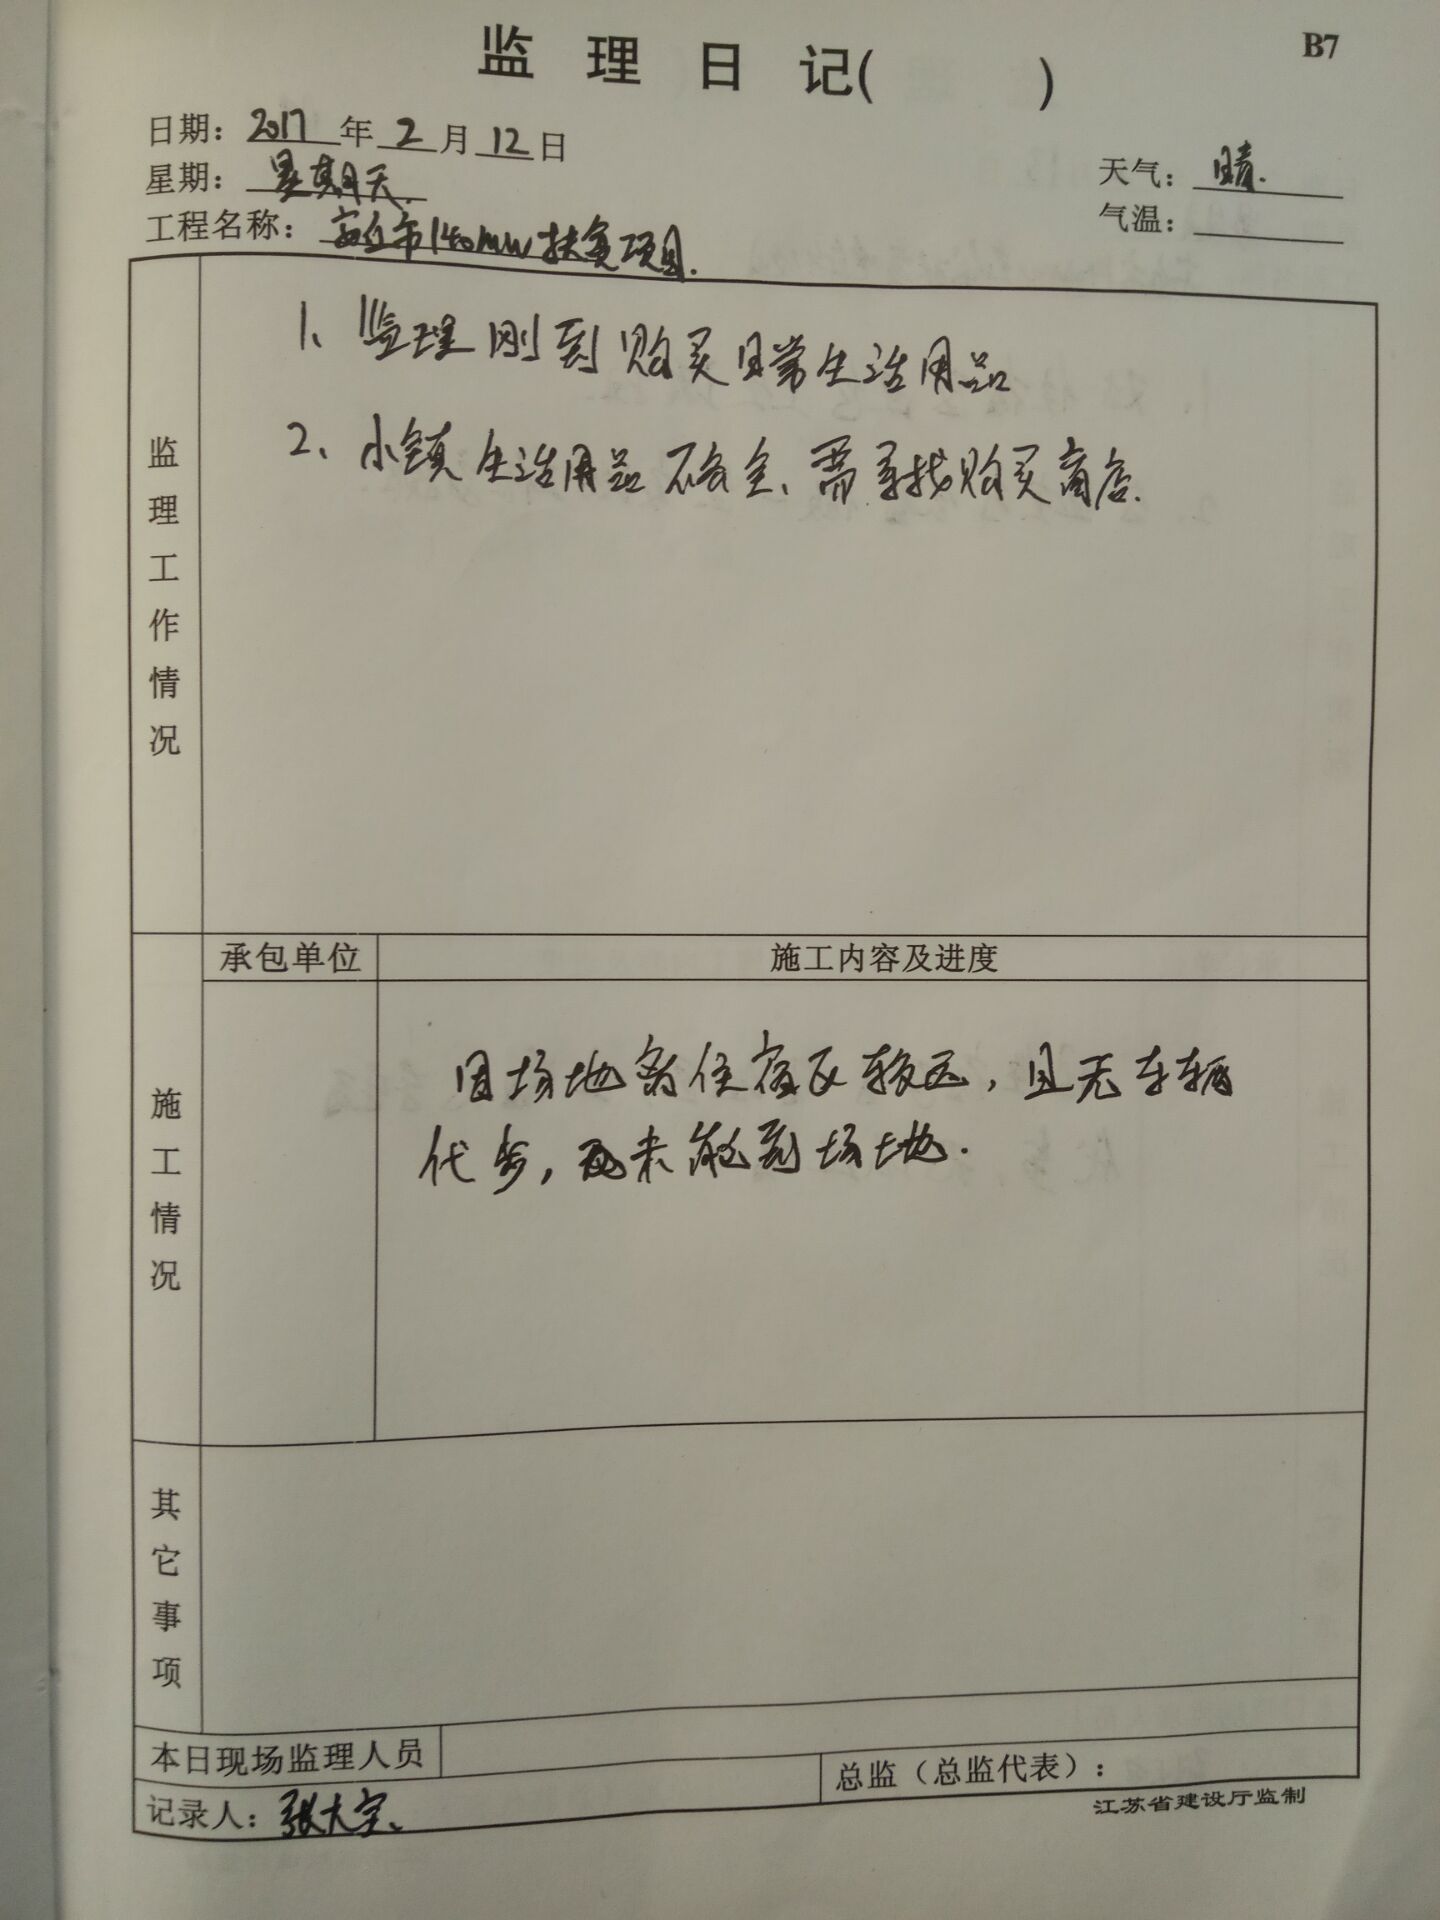 监理日记(　　)
B7
日期：2017年2月12日
星期：星期天.
天气：晴.
工程名称：安丘市140MW扶贫项目.
气温：
监理工作情况
1、监理刚到购买日常生活用品
2、小镇生活用品不全、需寻找购买商店.
承包单位
施工内容及进度
施工情况
因场地离住宿区较远，且无车辆
代步，未能到场地.
其它事项
本日现场监理人员
总监（总监代表）：
记录人：张大宇、
江苏省建设厅监制